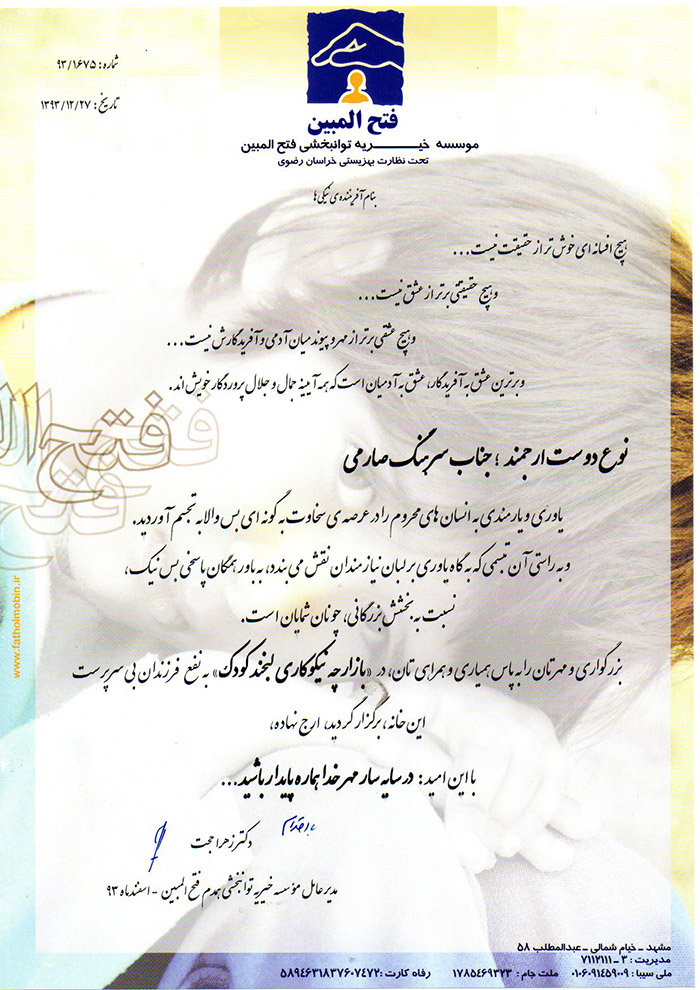 شماره: ۹۳/۱۶۷۵
تاریخ: ۱۳۹۳/۱۲/۲۷
فتح المبین
موسسه خیریه توانبخشی فتح المبین
تحت نظارت بهزیستی خراسان رضوی
بنام آفریننده ی نیکی ها
هیچ افسانه ای خوش تر از حقیقت نیست...
و هیچ حقیقتی برتر از عشق نیست...
و هیچ عشقی برتر از مهر و پیوند میان آدمی و آفریدگارش نیست...
و برترین عشق به آفریدگار، عشق به آدمیان است که همه آیینه جمال و جلال پروردگار خویش اند.
نوع دوست ارجمند ؛ جناب سرهنگ صارمی
یاوری و یارمندی به انسان های محروم را در عرصه ی سخاوت به گونه ای بس والا به تجسم آوردید.
و به راستی آن تبسمی که به گاه یاوری بر لبان نیازمندان نقش می بندد، به باور همگان پاسخی بس نیک،
نسبت به بخشش بزرگانی، چونان شمایان است.
بزرگواری و مهرتان را به پاس همیاری و همرای تان، در «بازارچه نیکوکاری لبخند کودک» به نفع فرزندان بی سرپرست
این خانه، برگزار گردید، ارج نهاده،
با این امید: در سایه سار مهر خدا هماره پایدار باشید...
با احترام
دکتر زهرا حجت
مدیر عامل مؤسسه خیریه توانبخشی همدم فتح المبین - اسفندماه ۹۳
فتح
www.fatholmobin.ir
مشهد - خیام شمالی - عبدالمطلب ۵۸
مدیریت : ۳ - ۷۱۱۲۱۱۱
ملی سیبا : ۰۱۰۶۰۹۱۴۵۹۰۰۹ ملت جام : ۱۷۸۵۴۶۹۳۷۳ رفاه کارت : ۵۸۹۴۶۳۱۸۳۷۶۰۷۴۷۲